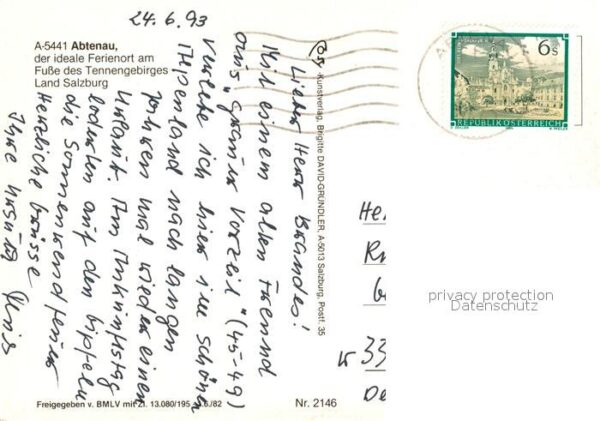 24.6.93
A-5441 Abtenau,
der ideale Ferienort am
Fuße des Tennengebirges
Land Salzburg
Lieber Herr Brandes!
Mit einem alten Freund
aus "grauer Vorzeit" (45-49)
verlebe ich hier im schönen
Alpenland nach langen
Jahren mal wieder einen
Urlaub. Am Ankunftstag
loderten auf den Gipfeln
die Sonnenwendfeuer
Herzliche Grüsse
Ihre
Kunstverlag, Brigitte DAVID-GRÜNDLER, A-5013 Salzburg, Postf. 35
6s
REPUBLIK ÖSTERREICH
He
privacy protection
Datenschutz
W 33
De
Freigegeben v. BMLV mit Zl. 13.080/195 - .6./82
Nr. 2146